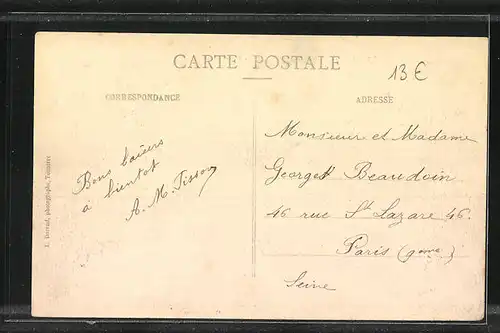 CARTE POSTALE
13 €
CORRESPONDANCE
ADRESSE
Bons baisers
à bientôt
A. M. Tisson
Monsieur et Madame
Georges Beaudoin
46 rue St Lazare 46.
Paris (9ème)
Seine
photographe,